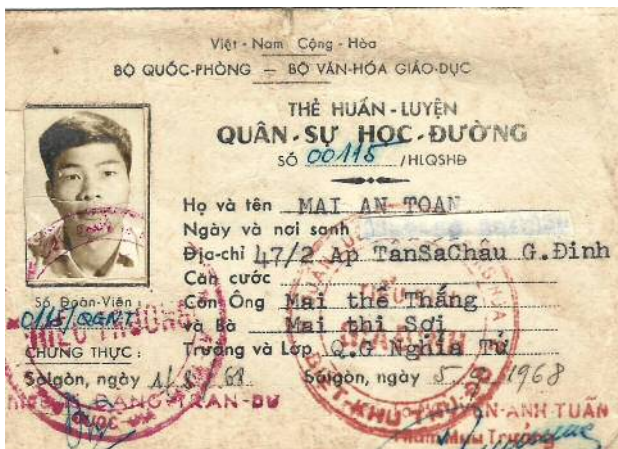 Việt - Nam Cộng - Hòa
BỘ QUỐC-PHÒNG — BỘ VĂN-HÓA GIÁO-DỤC
THẺ HUẤN - LUYỆN
QUÂN - SỰ HỌC - ĐƯỜNG
SỐ 00115 /HLQSHĐ
Họ và tên MAI AN TOAN
Ngày và nơi sanh
Địa-chỉ 47/2 Ap TânSaChâu G.Đinh
Căn cước
Con Ông Mai thế Thắng
và Bà Mai thi Sợi
Trường và Lớp Q.G Nghĩa Tử
Saigòn, ngày 5 1968
Số Đoàn-Viên :
0115/QGNT
CHỨNG THỰC :
Saigòn, ngày
ĐẶNG-TRẦN-DU
NGUYỄN-ANH TUẤN
Tham Mưu Trưởng